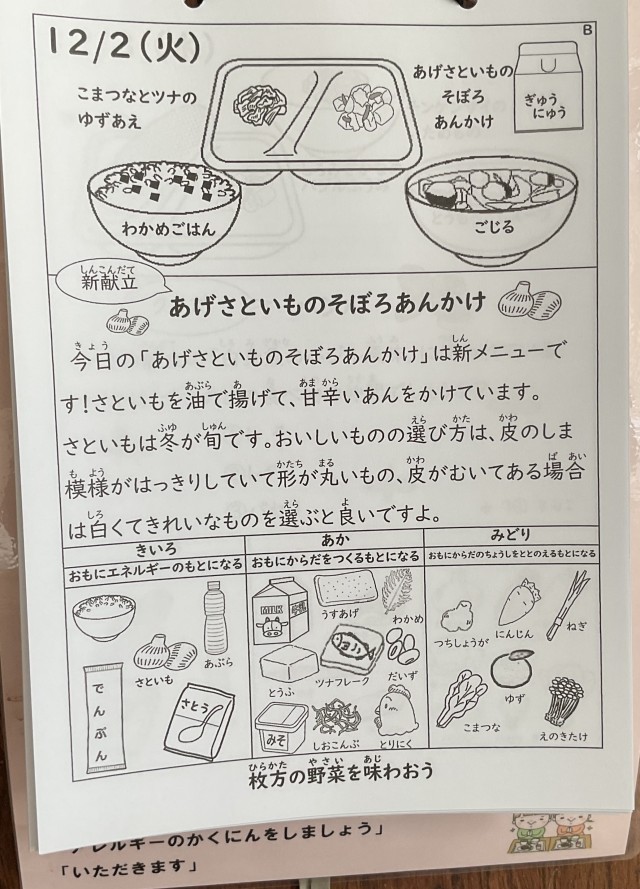 12/2(火)
B
こまつなとツナの
ゆずあえ
あげさといもの
そぼろ
あんかけ
ぎゅう
にゅう
わかめごはん
ごじる
しんこんだて
新献立
あげさといものそぼろあんかけ
きょう しん
今日の「あげさといものそぼろあんかけ」は新メニューで
あぶら あ あま から
す!さといもを油で揚げて、甘辛いあんをかけています。
ふゆ しゅん えら かた かわ
さといもは冬が旬です。おいしいものの選び方は、皮のしま
も よう かたち まる かわ ば あい
模様がはっきりしていて形が丸いもの、皮がむいてある場合
しろ えら よ
は白くてきれいなものを選ぶと良いですよ。
きいろ
おもにエネルギーのもとになる
さといも
あぶら
でんぷん
さとう
あか
おもにからだをつくるもとになる
MILK
牛乳
うすあげ
わかめ
とうふ
ツナフレーク
だいず
みそ
しおこんぶ
とりにく
みどり
おもにからだのちょうしをととのえるもとになる
つちしょうが
にんじん
ねぎ
こまつな
ゆず
えのきたけ
ひらかた やさい あじ
枚方の野菜を味わおう
アレルギーのかくにんをしましょう」
「いただきます」